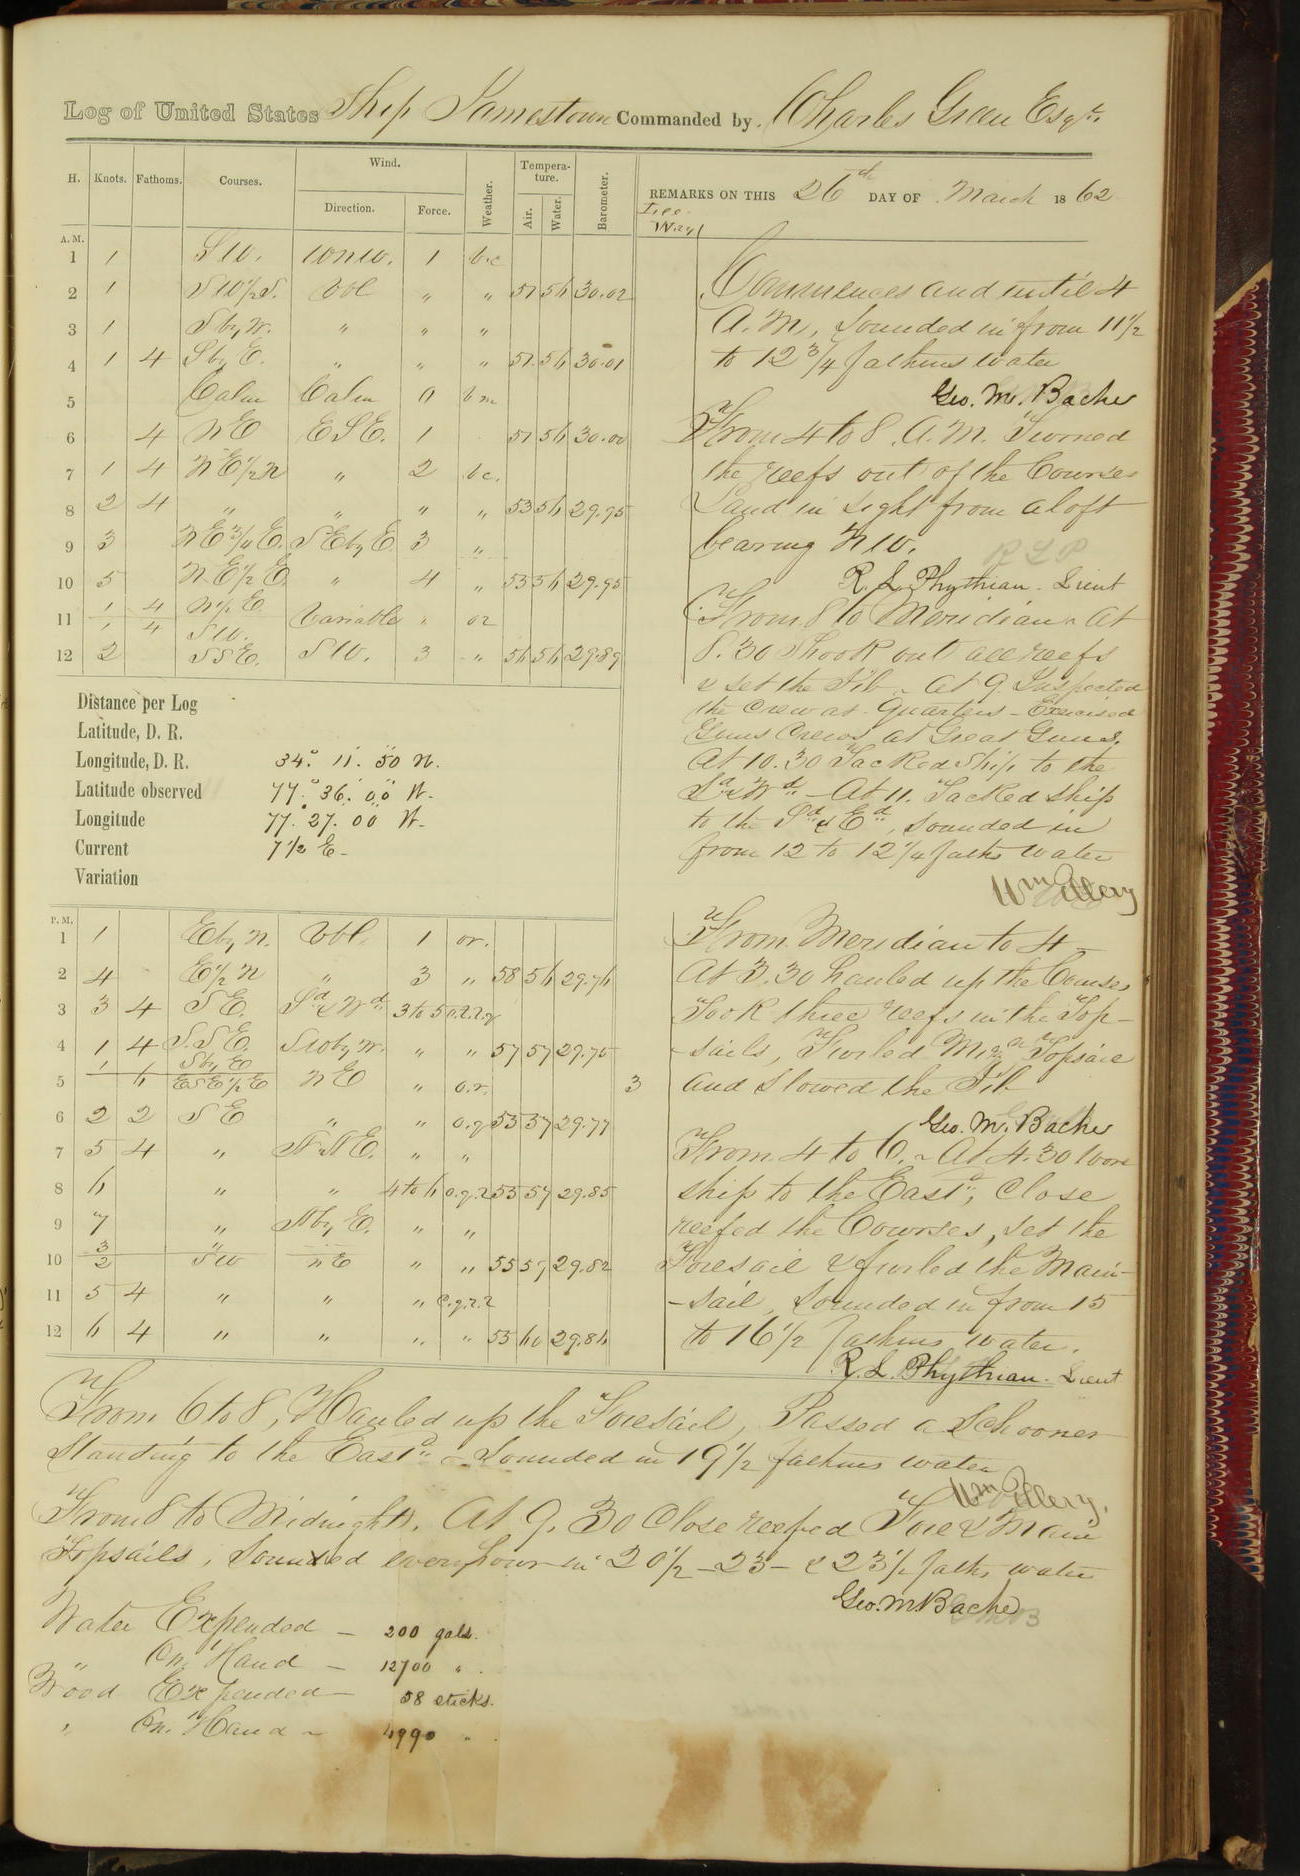 Log of United States Ship Jamestown Commanded by Charles Green Esqr.
H. Knots. Fathoms. Courses. Wind. Direction. Force. Weather. Temperature. Air. Water. Barometer. REMARKS ON THIS 26th DAY OF March 1862
Lee Way
A.M.
1 1 S W. WNW. 1 b.c
2 1 SW 1/2 S. Vbl " " 57 56 30.02
3 1 S by W. " " "
4 1 4 S by E. " " " 57 56 30.01
5 Calm Calm 0 b m
6 4 NE ESE. 1 57 56 30.00
7 1 4 NE 1/2 N " 2 b c.
8 2 4 " " " " 53 56 29.95
9 3 NE 3/4 E. SE by E 3 "
10 5 NE 1/2 E " 4 " 53 56 29.95
11 1 4 E Variable " or
1 4 SW.
12 2 SSE. SW. 3 " 56 56 29.89
Commences and until 4
A.M, Sounded in from 11 1/2
to 12 3/4 fathms water
Geo. M. Bache
From 4 to 8 A.M. Turned
the reefs out of the Courses
Land in sight from aloft
bearing N W.
R L P
R. L. Phythian. Lieut
From 8 to Meridian. At
8.30 Shook out all reefs
& set the Jib. At 9 Inspected
the Crew at Quarters - Exercised
Guns Crews at Great Guns.
At 10.30 Tacked Ship to the
Sd & Wd - At 11. Tacked ship
to the Sd & Ed, Sounded in
from 12 to 12 1/4 faths water
Wm Ellery
Distance per Log
Latitude, D. R.
Longitude, D. R. 34° 11' 50" N.
Latitude observed 77° 36' 00" W.
Longitude 77. 27. 00 W.
Current 7 1/2 E -
Variation
P.M.
1 1 E by N. Vbl. 1 or.
2 4 E 1/2 N " 3 " 58 56 29.76
3 3 4 SE. Sd & Wd 3 to 5
4 1 4 S.SE. SW by W. " " 57 57 29.75
1 S by E
5 6 ESE 1/2 E NE " o.r. 3
6 2 2 SE " " o.q 55 57 29.77
7 5 4 " N NE. " "
8 6 " " 4 to 6 o.q.r 55 57 29.85
9 7 " N by E. " "
10 3 "
2 SW NE " " 55 57 29.82
11 5 4 " " "
12 6 4 " " " " 55 60 29.86
From Meridian to 4 -
At 3.30 hauled up the Courses
Took three reefs in the Top-
-sails, Furled Mizn Topsail
and stowed the Jib
Geo. M. Bache
From 4 to 6. At 4.30 wore
ship to the Eastd, close
reefed the Courses, set the
Foresail & furled the Main-
-sail, Sounded in from 15
to 16 1/2 fathms water.
R. L. Phythian. Lieut
From 6 to 8, Hauled up the Foresail, Passed a Schooner
Standing to the Eastd - Sounded in 19 1/2 fathms water
Wm Ellery.
From 8 to Midnight. At 9.30 Close reefed Fore & Main
Topsails, Sounded every hour in 20 1/2 - 23 - & 23 1/2 faths water
Geo. M. Bache
Water Expended - 200 gals.
" On Hand - 12700 "
Wood Expended - 58 sticks.
" On Hand - 4990 "